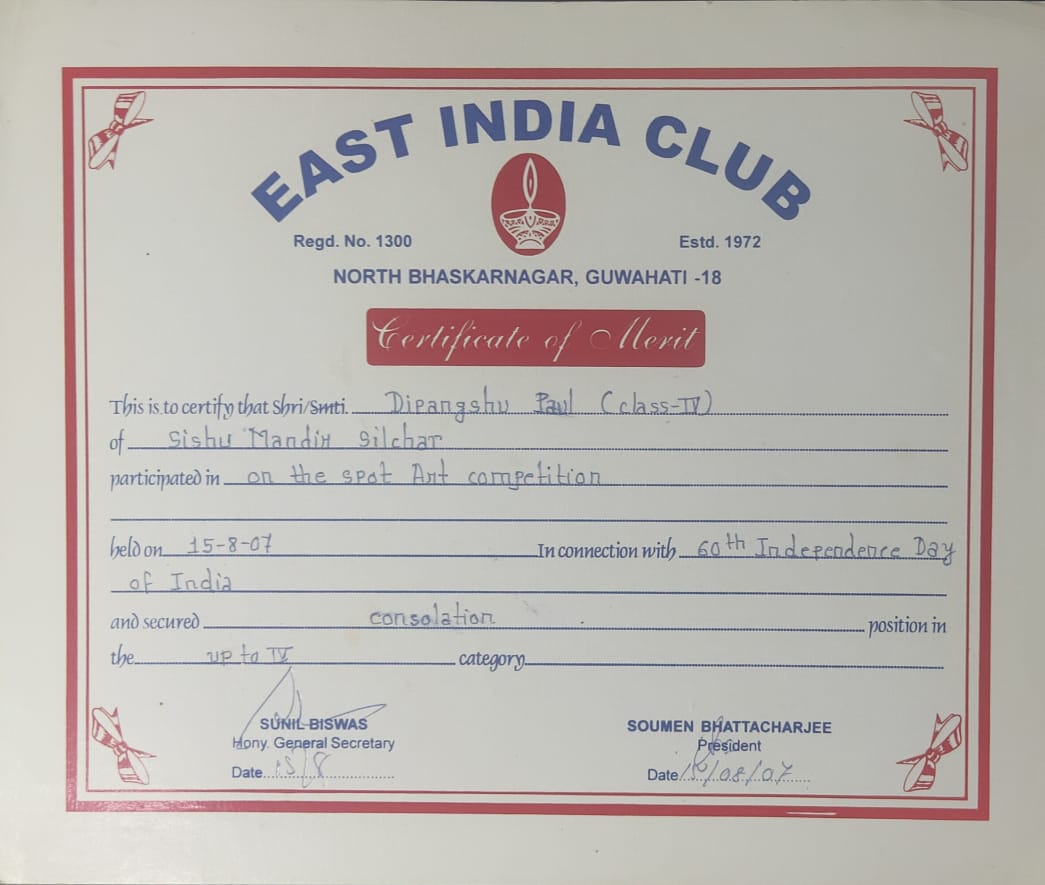 EAST INDIA CLUB
Regd. No. 1300 Estd. 1972
NORTH BHASKARNAGAR, GUWAHATI -18
Certificate of Merit
This is to certify that Shri/Smti. Dipangshu Paul (class-IV)
of Sishu Mandir Silchar
participated in on the spot Art competition
held on 15-8-07 In connection with 60th Independence Day
of India
and secured consolation position in
the up to IV category
SUNIL BISWAS
Hony. General Secretary
Date 15/8
SOUMEN BHATTACHARJEE
President
Date 15/08/07